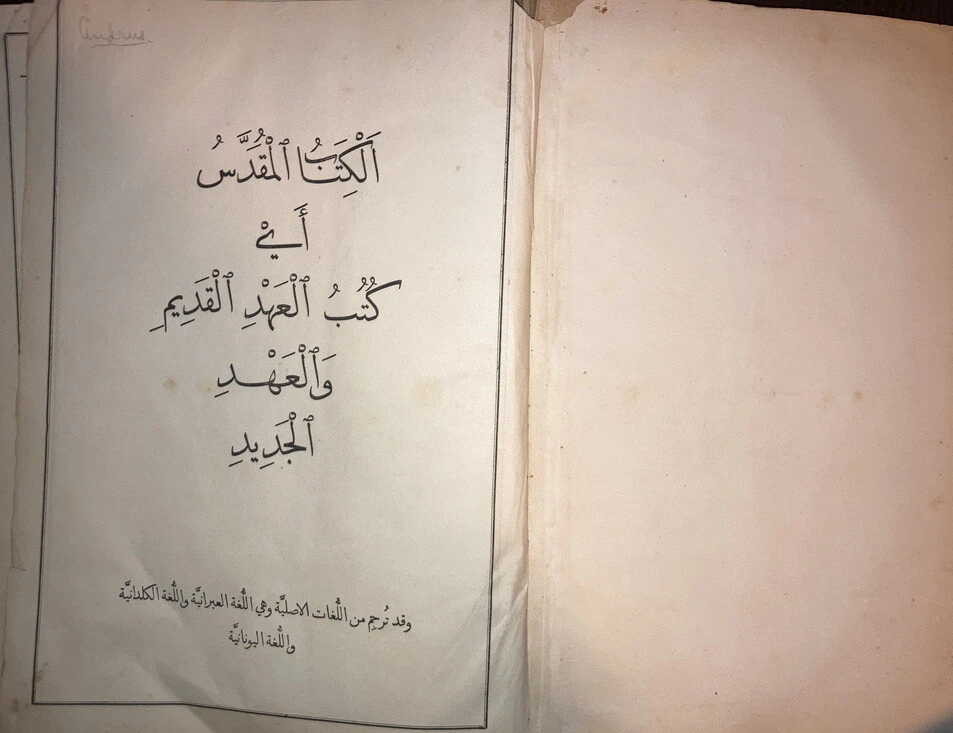 Andrus
اَلْكِتَابُ ٱلْمُقَدَّسُ
أَيْ
كُتُبُ ٱلْعَهْدِ ٱلْقَدِيمِ
وَٱلْعَهْدِ
ٱلْجَدِيدِ
وقد تُرجم من اللُّغات الاصليَّة وهي اللُّغة العبرانيَّة واللُّغة الكلدانيَّة
واللُّغة اليونانيَّة